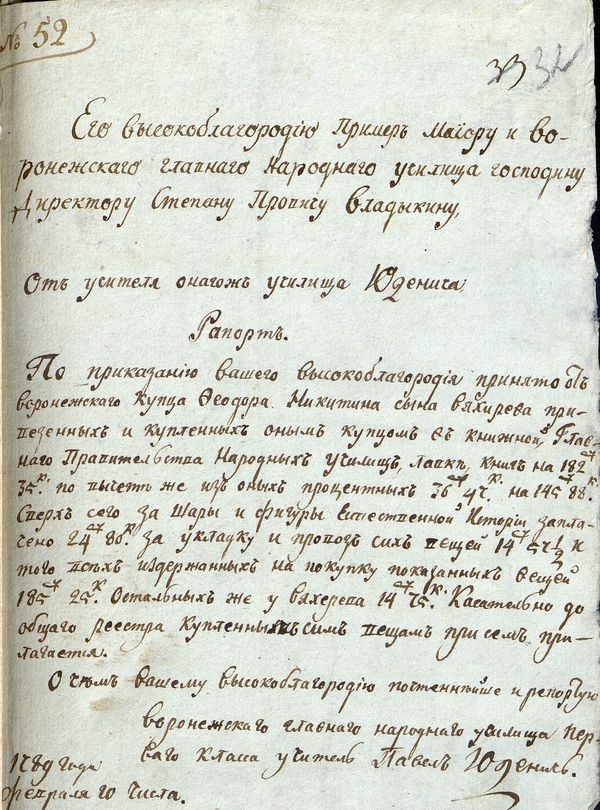 № 52
33 32
Его высокоблагородію примеръ маіору и во-
ронежскаго главнаго народнаго училища господину
Директору Степану Провичу владыкину,
Отъ учителя онагожъ училища Юденича
Рапортъ.
По приказанію вашего высокоблагородія принято отъ
воронежскаго купца Ѳеодора Никитина сына вяхирева при-
везенныхъ и купленныхъ онымъ купцомъ въ книжной Глав-
наго Правительства Народныхъ училищъ, лавкѣ, книгъ на 182
35 к. по вычетѣ же изъ оныхъ процентныхъ 36 47 к. на 145 88 к.
Сверхъ сего за Шары и фигуры Естественной Исторіи запла-
чено 24 80 к. за укладку и провозъ сихъ вещей 14 57 ½ к
того всѣхъ издержанныхъ на покупку показанныхъ вещей
185 25 к. Остальныхъ же у вяхерева 14 75 к. Касательно до
общаго реестра купленнымъ симъ вещамъ при семъ при-
лагается.
О чѣмъ вашему высокоблагородію почтеннѣйше и репортую
воронежскаго главнаго народнаго училища пер-
ваго класа учитель Павелъ Юденичъ.
1789 года
февраля го числа.